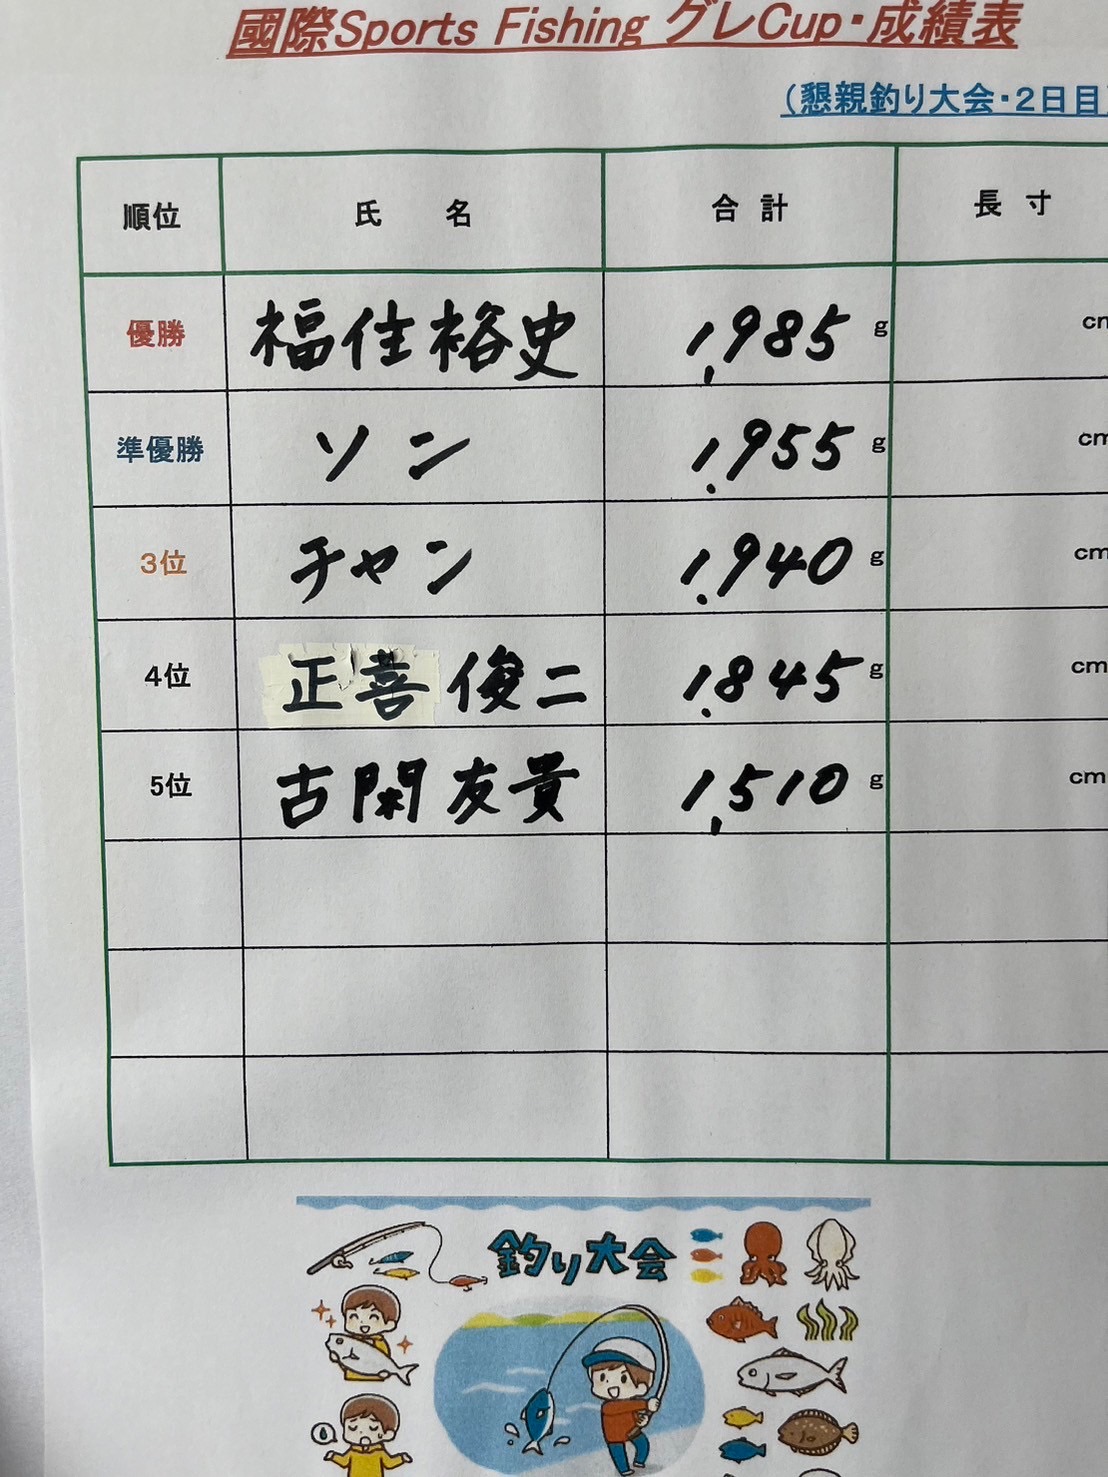 國際Sports Fishing グレCup・成績表
（懇親釣り大会・2日目）
順位 氏 名 合 計 長 寸
優勝 福住裕史 1,985 g cm
準優勝 ソン 1,955 g cm
3位 チャン 1,940 g cm
4位 正喜俊二 1,845 g cm
5位 古閑友貴 1,510 g cm
釣り大会